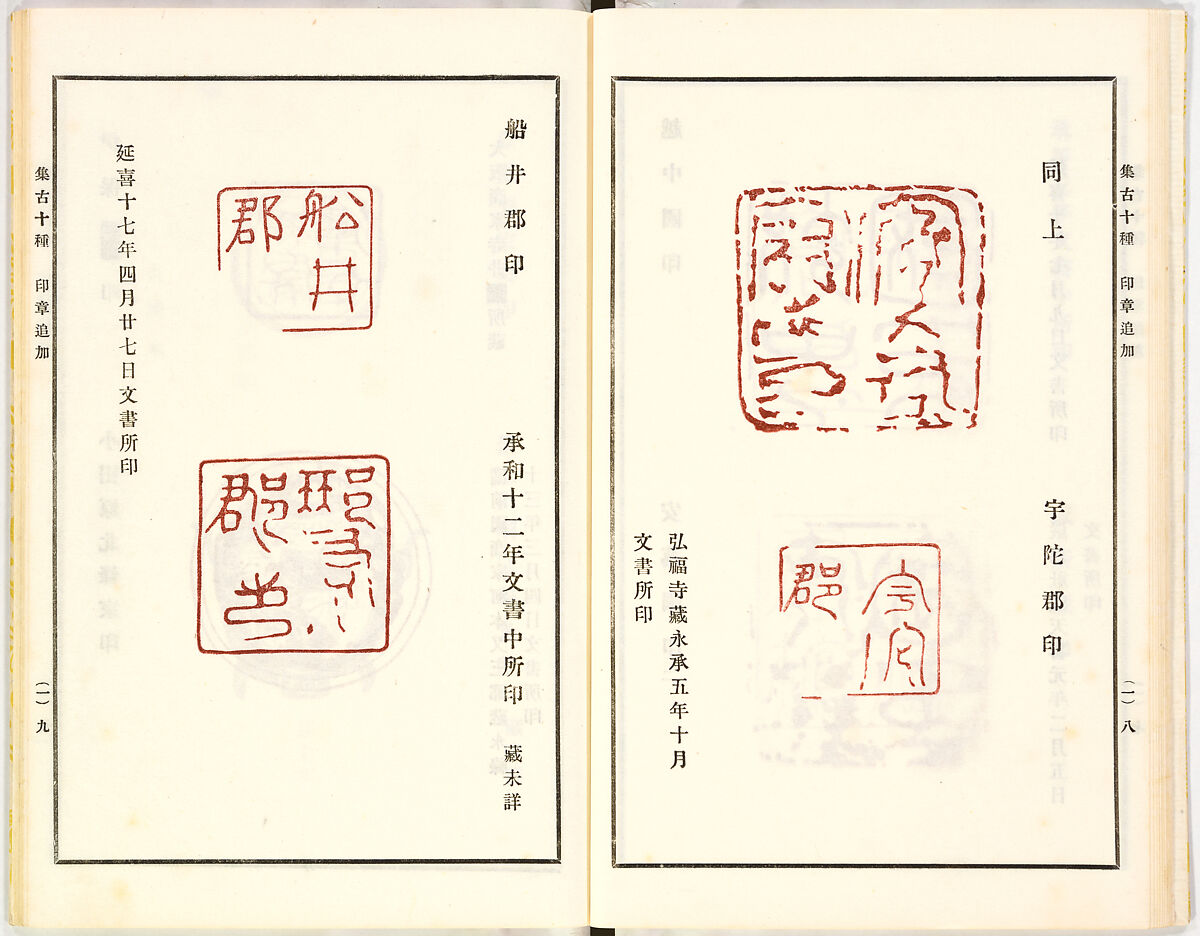 集古十種 印章追加
(一)八
同上
宇陀郡印
弘福寺藏永承五年十月
文書所印
郡
船井郡印
承和十二年文書中所印 藏未詳
船井
郡
郡印
延喜十七年四月廿七日文書所印
集古十種 印章追加
(一)九